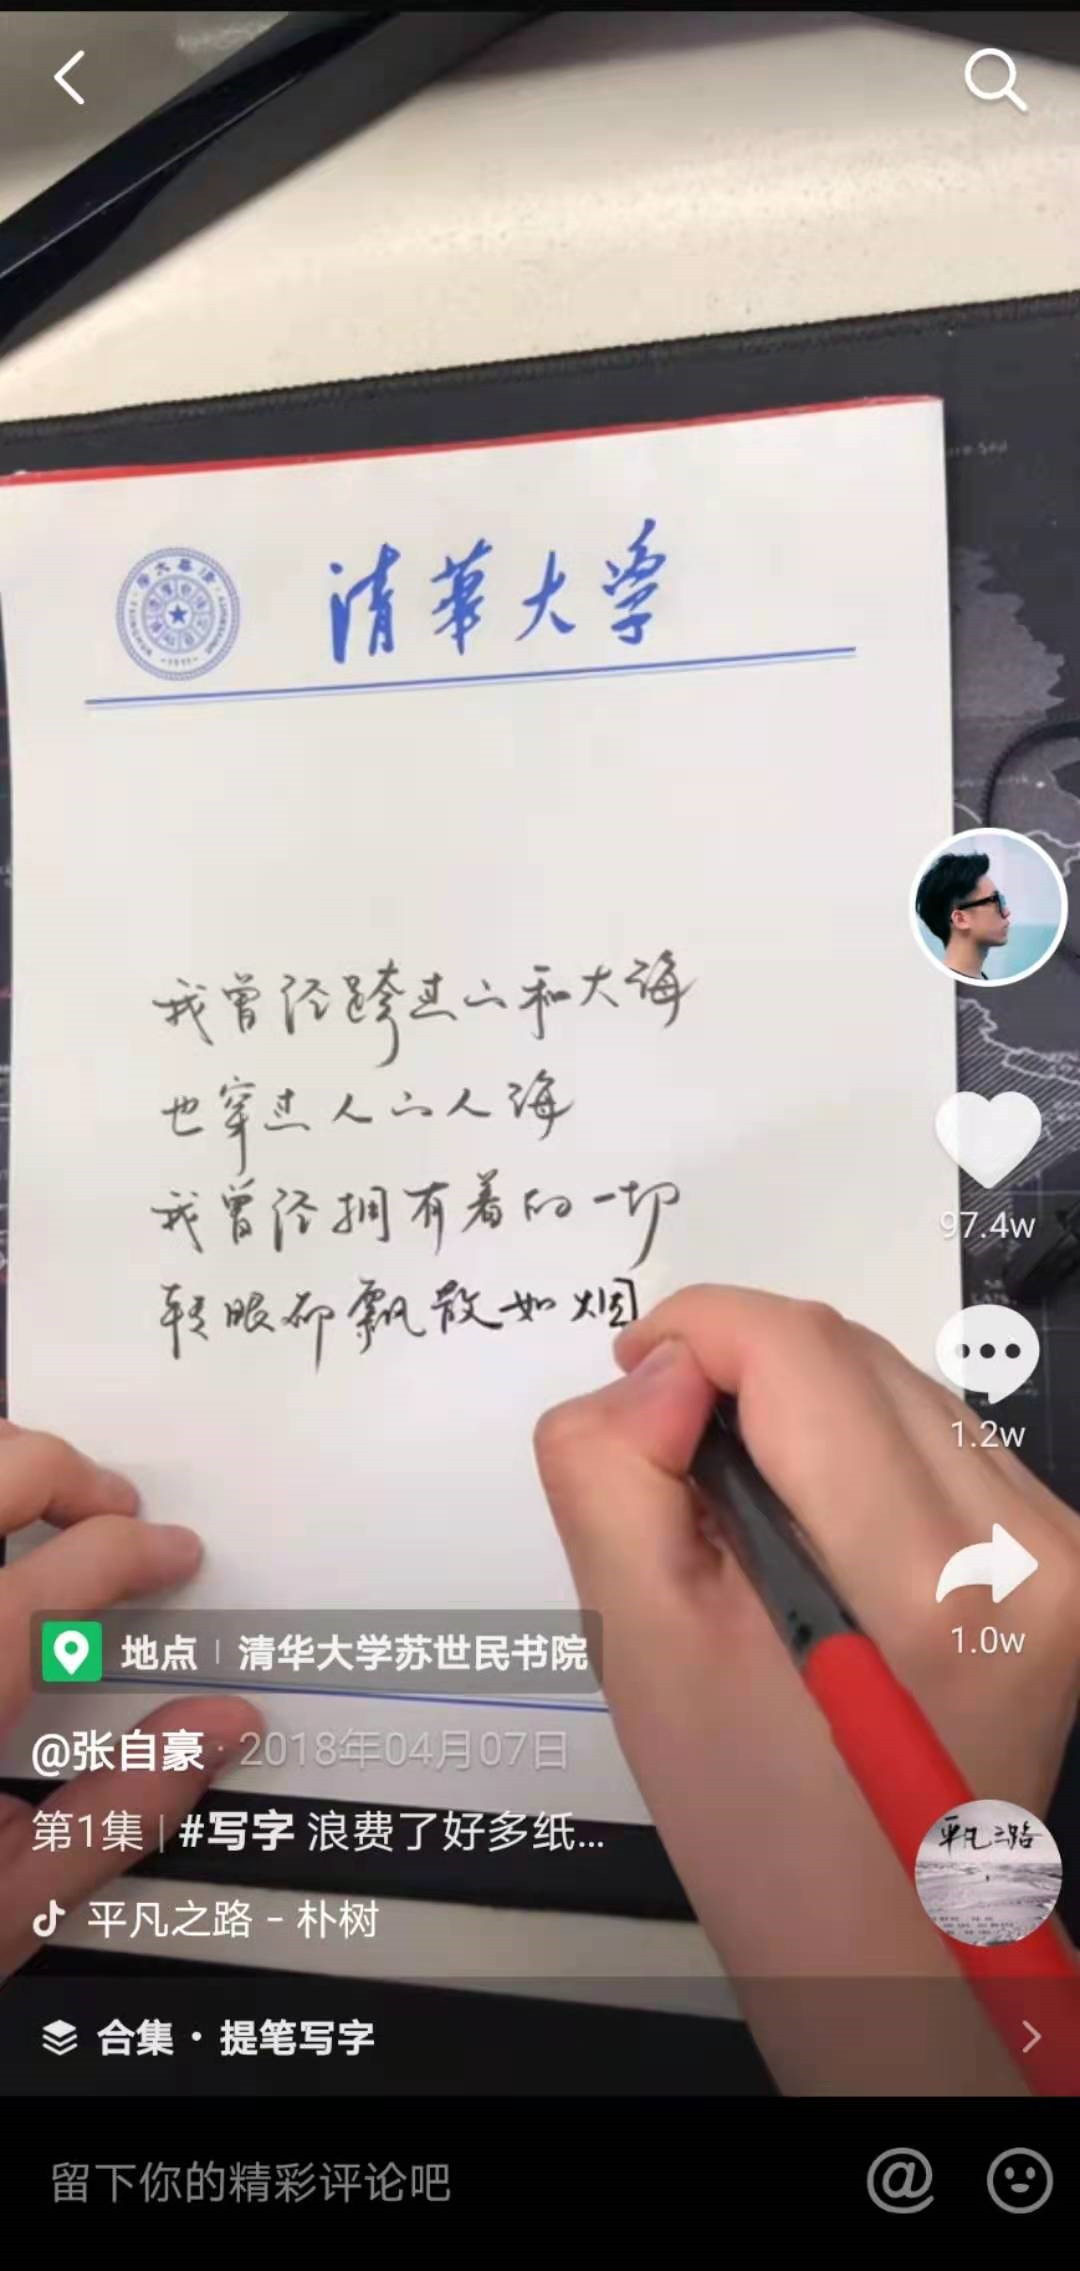 清華大学
我曾经跨过山和大海
也穿过人山人海
我曾经拥有着的一切
转眼却飘散如烟
97.4w
1.2w
1.0w
地点 | 清华大学苏世民书院
@张自豪 · 2018年04月07日
第1集 | #写字 浪费了好多纸...
平凡之路
平凡之路 - 朴树
合集 · 提笔写字
留下你的精彩评论吧